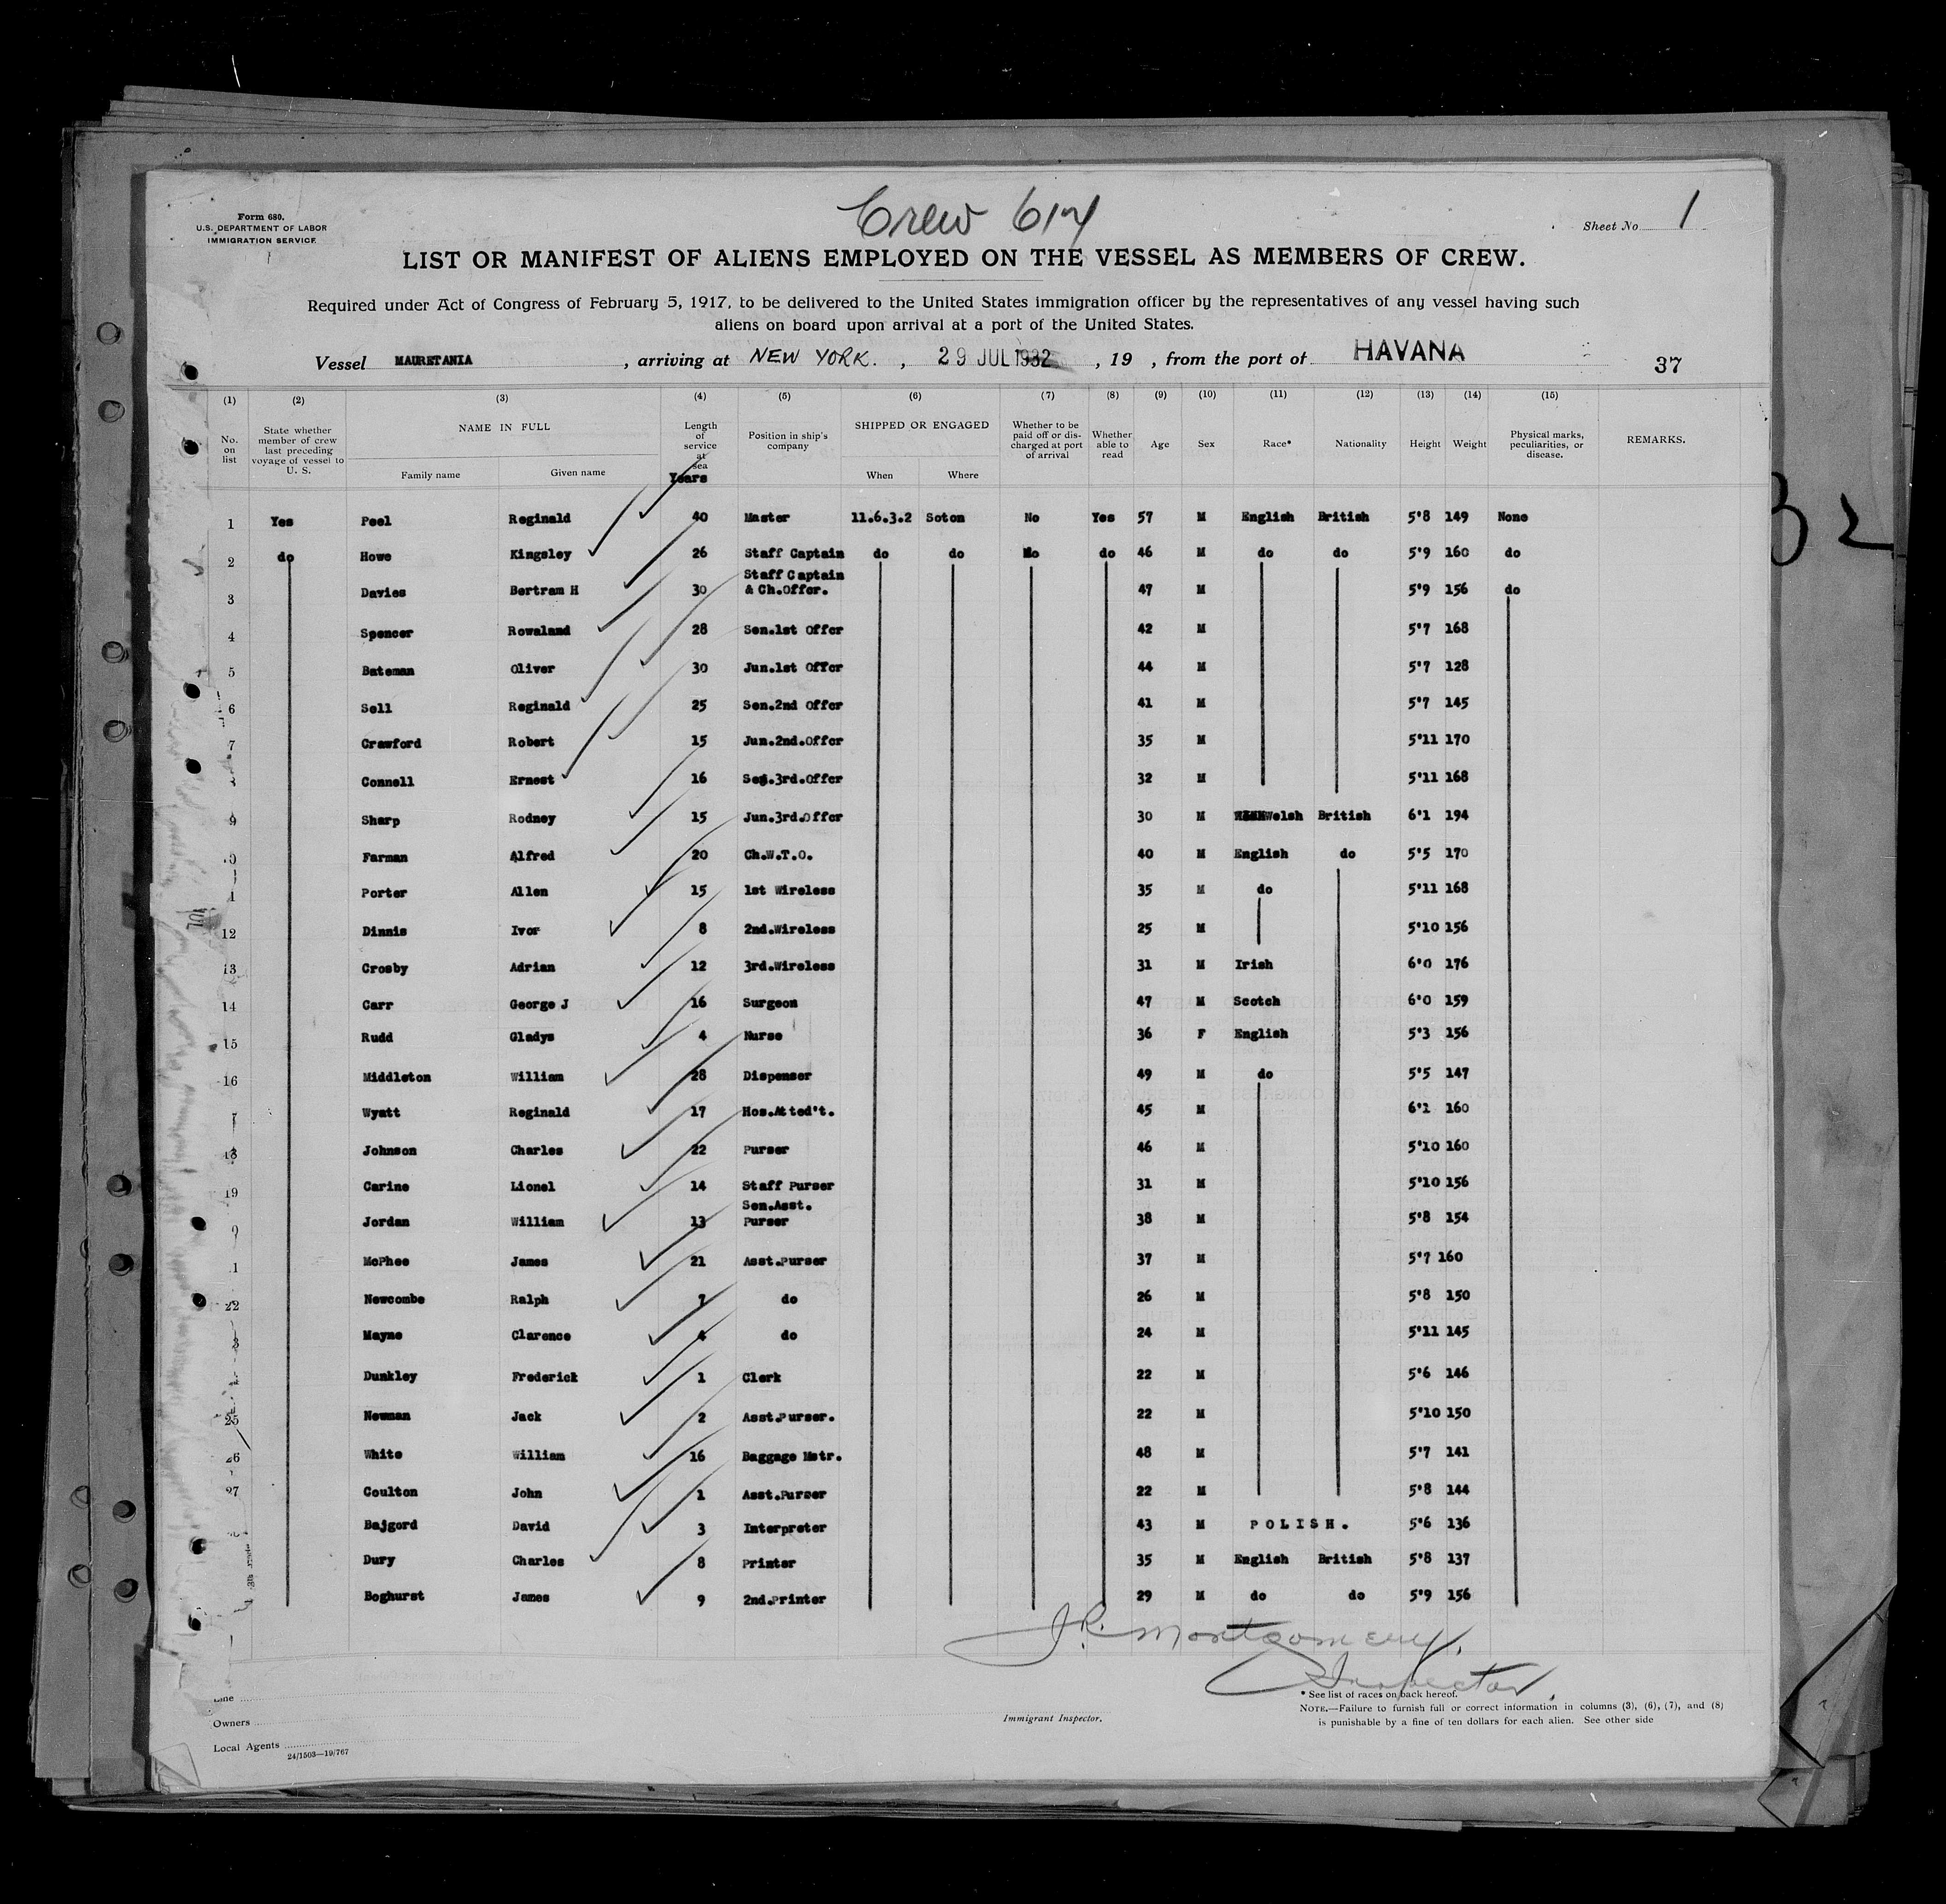 Crew 617
Form 680.
U.S. DEPARTMENT OF LABOR
IMMIGRATION SERVICE.
Sheet No 1
LIST OR MANIFEST OF ALIENS EMPLOYED ON THE VESSEL AS MEMBERS OF CREW.
Required under Act of Congress of February 5, 1917, to be delivered to the United States immigration officer by the representatives of any vessel having such
aliens on board upon arrival at a port of the United States.
Vessel MAURETANIA , arriving at NEW YORK. , 29 JUL 1932 , 19 , from the port of HAVANA 37
(1) (2) (3) (4) (5) (6) (7) (8) (9) (10) (11) (12) (13) (14) (15)
No. on list State whether member of crew last preceding voyage of vessel to U. S. NAME IN FULL Family name Given name Length of service at sea Years Position in ship's company SHIPPED OR ENGAGED When Where Whether to be paid off or discharged at port of arrival Whether able to read Age Sex Race* Nationality Height Weight Physical marks, peculiarities, or disease. REMARKS.
1 Yes Peel Reginald 40 Master 11.6.3.2 Soton No Yes 57 M English British 5'8 149 None
2 do Howe Kingsley 26 Staff Captain do do do do 46 M do do 5'9 160 do
3 Davies Bertram H 30 Staff Captain & Ch.Offer. 47 M 5'9 156 do
4 Spencer Rowaland 28 Sen.1st Offer 42 M 5'7 168
5 Bateman Oliver 30 Jun.1st Offer 44 M 5'7 128
6 Sell Reginald 25 Sen.2nd Offer 41 M 5'7 145
7 Crawford Robert 15 Jun.2nd.Offer 35 M 5'11 170
Connell Ernest 16 Sen.3rd.Offer 32 M 5'11 168
9 Sharp Rodney 15 Jun.3rd.Offer 30 M Welsh British 6'1 194
0 Farman Alfred 20 Ch.W.T.O. 40 M English do 5'5 170
1 Porter Allen 15 1st Wireless 35 M do 5'11 168
12 Dinnis Ivor 8 2nd.Wireless 25 M 5'10 156
13 Crosby Adrian 12 3rd.Wireless 31 M Irish 6'0 176
14 Carr George J 16 Surgeon 47 M Scotch 6'0 159
15 Rudd Gladys 4 Nurse 36 F English 5'3 156
16 Middleton William 28 Dispenser 49 M do 5'5 147
7 Wyatt Reginald 17 Hos.Atted't. 45 M 6'1 160
18 Johnson Charles 22 Purser 46 M 5'10 160
19 Carine Lionel 14 Staff Purser 31 M 5'10 156
0 Jordan William 13 Sen.Asst. Purser 38 M 5'8 154
1 McPhee James 21 Asst.Purser 37 M 5'7 160
22 Newcombe Ralph 7 do 26 M 5'8 150
3 Mayne Clarence 4 do 24 M 5'11 145
Dunkley Frederick 1 Clerk 22 M 5'6 146
25 Newman Jack 2 Asst.Purser. 22 M 5'10 150
26 White William 16 Baggage Mstr. 48 M 5'7 141
27 Coulton John 1 Asst.Purser 22 M 5'8 144
Bajgord David 3 Interpreter 43 M POLISH. 5'6 136
Dury Charles 8 Printer 35 M English British 5'8 137
Boghurst James 9 2nd.Printer 29 M do do 5'9 156
J.R. Montgomery.
Inspector.
Line
Owners
Local Agents
24/1503—19/767
Immigrant Inspector.
* See list of races on back hereof.
NOTE.—Failure to furnish full or correct information in columns (3), (6), (7), and (8)
is punishable by a fine of ten dollars for each alien. See other side